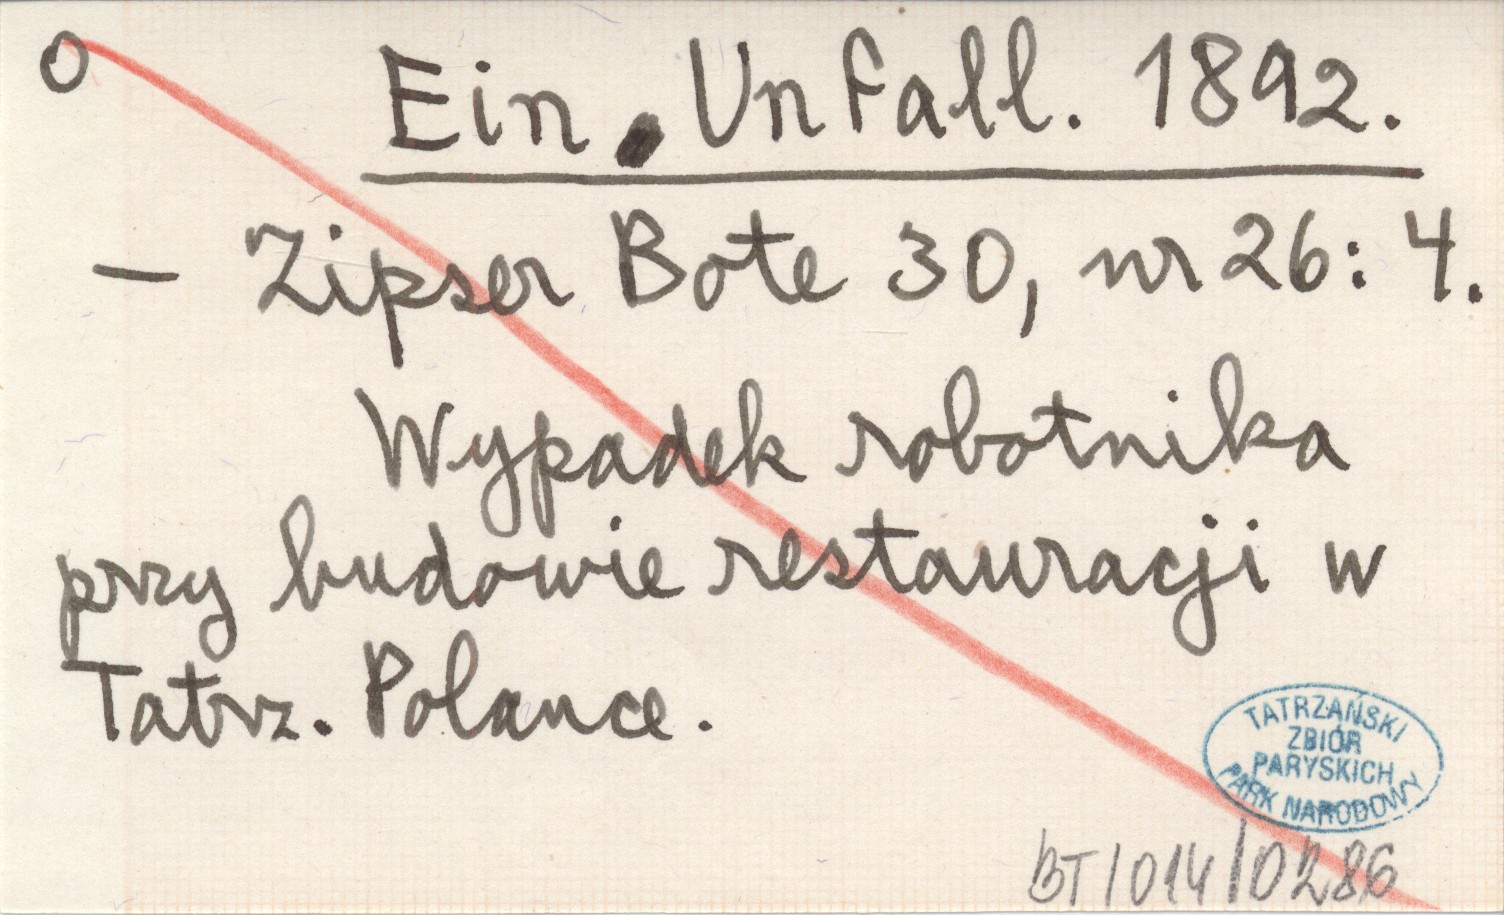 o Ein Unfall. 1892.
— Zipser Bote 30, nr 26: 4.
Wypadek robotnika
przy budowie restauracji w
Tatrz. Polance.
TATRZAŃSKI
ZBIÓR
PARYSKICH
PARK NARODOWY
BT/014/0286